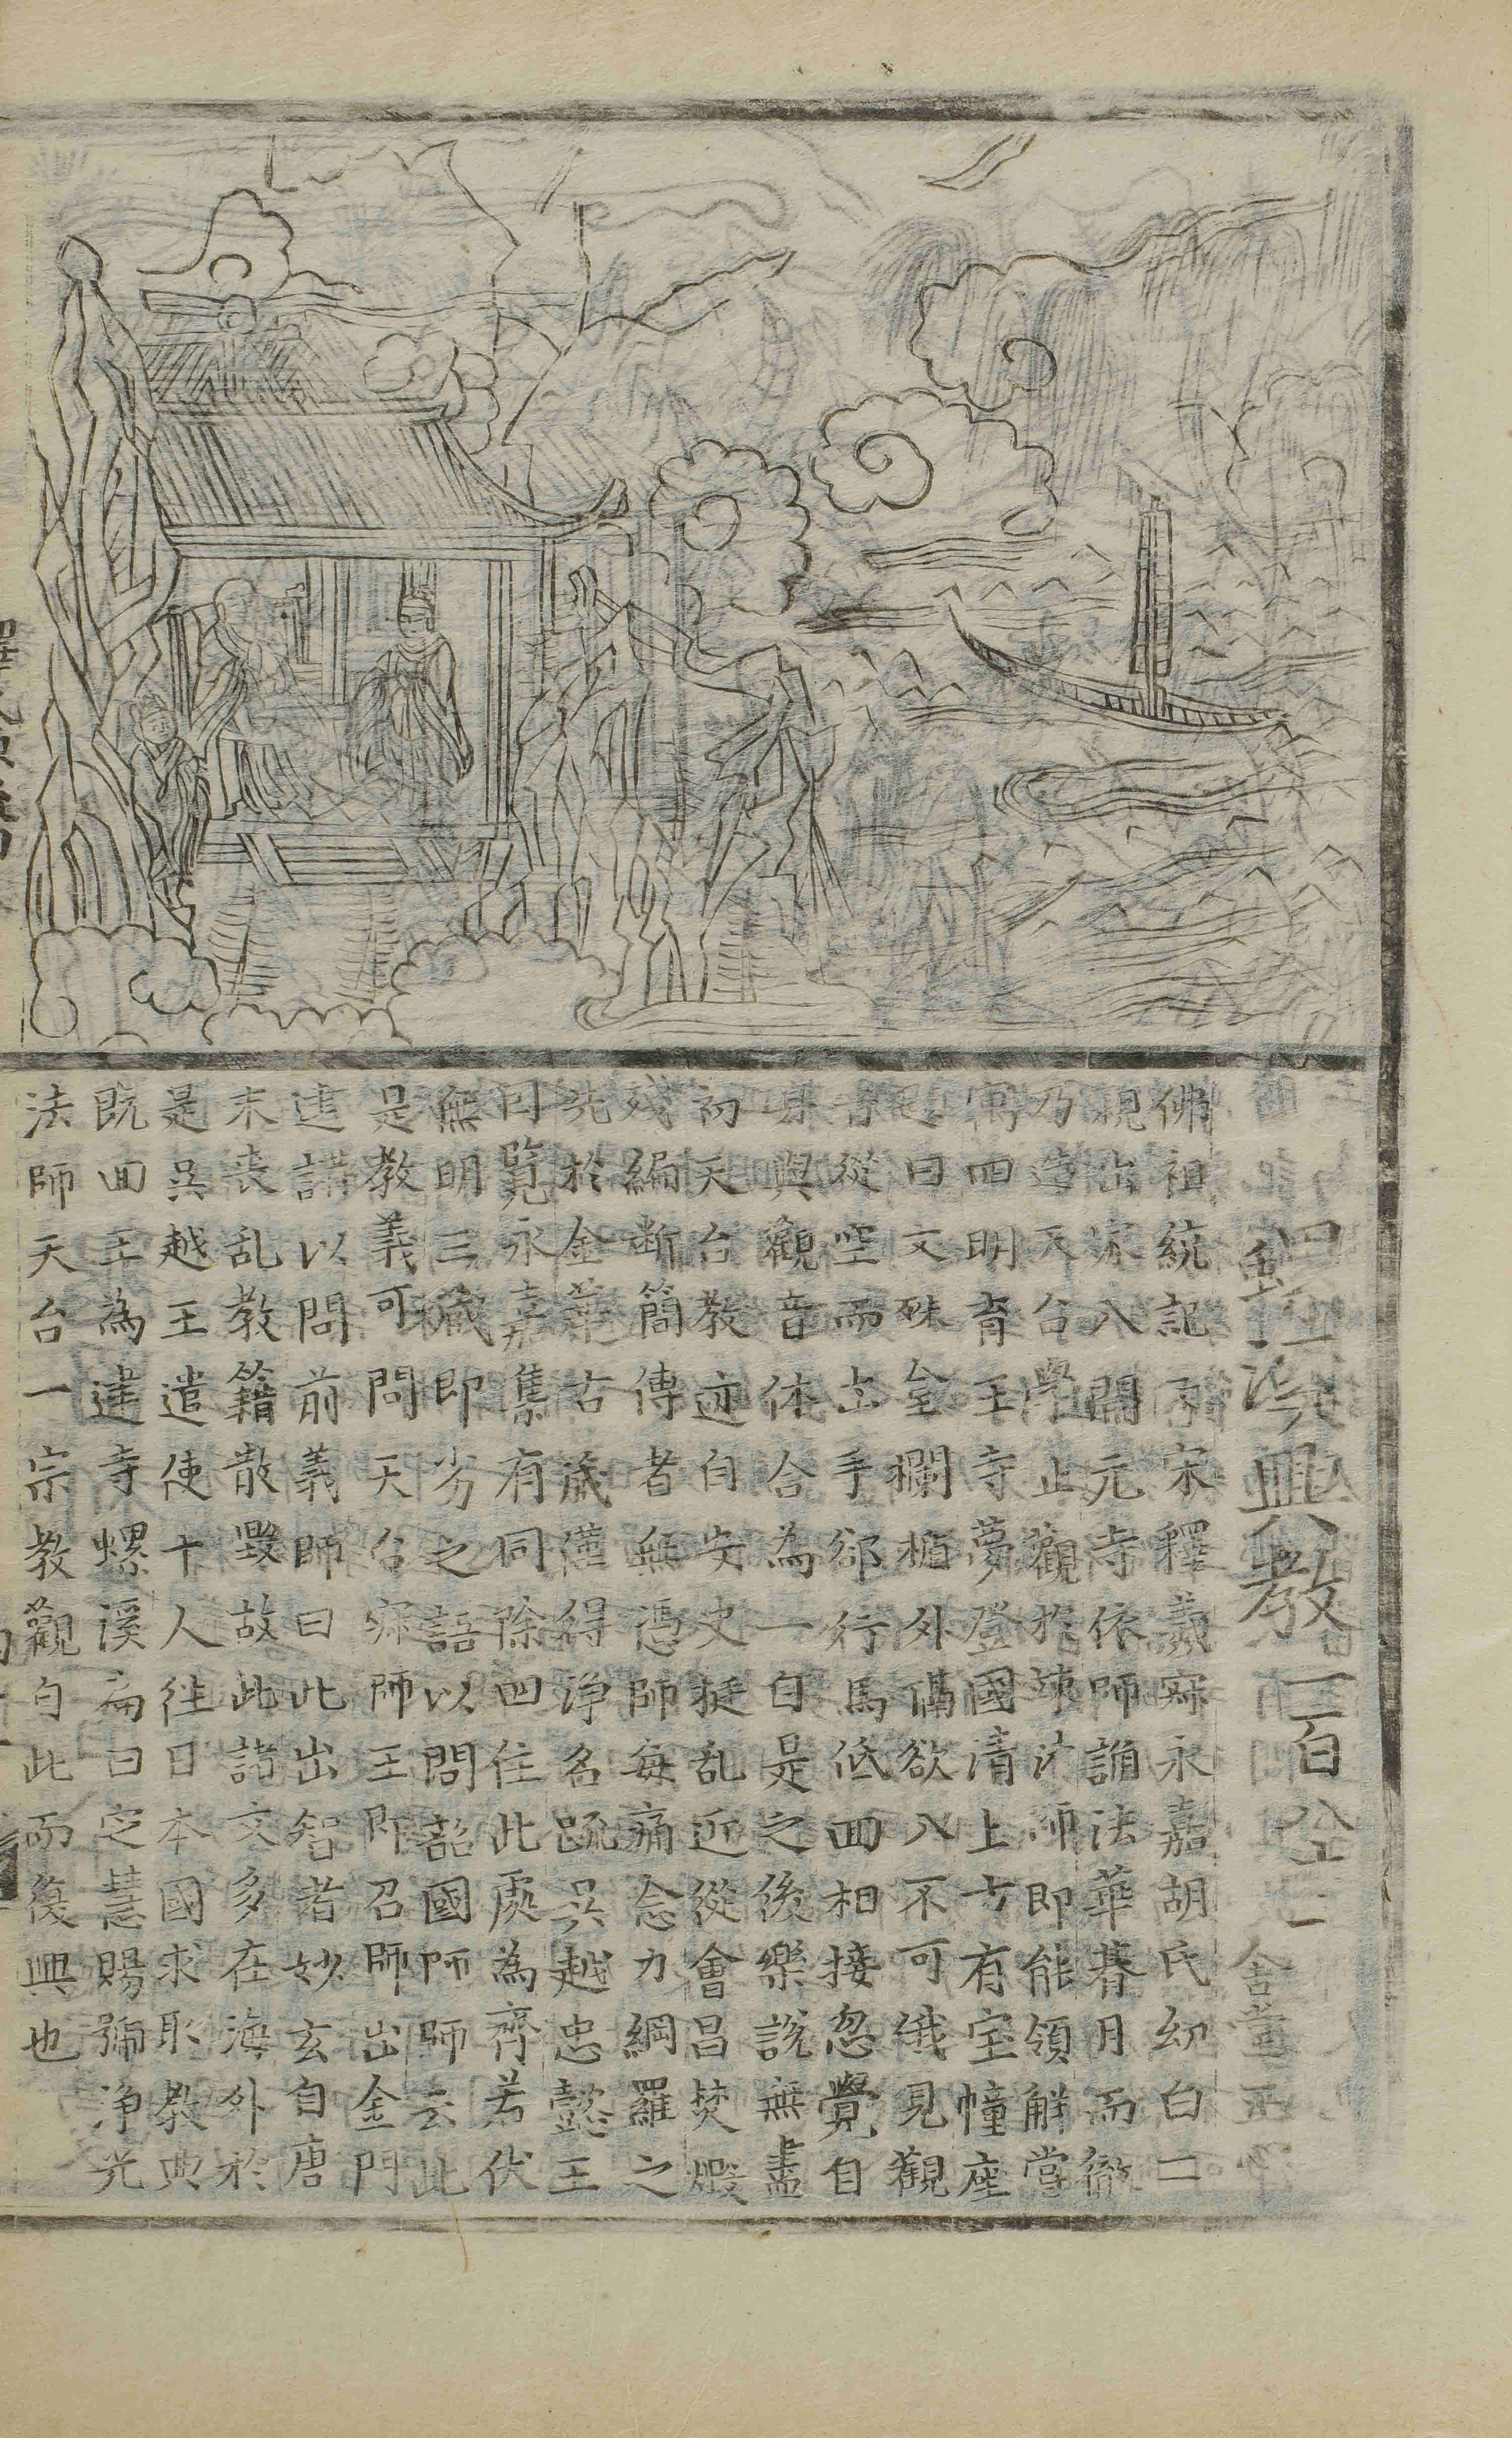 螺溪興教 一百八十一
佛祖統記云宋釋羲寂永嘉胡氏幼白二
親出家入開元寺依師誦法華朞月而徹
乃造天台學止觀於竦法師即能領解嘗
寓四明育王寺夢登國清上方有宝幢座
題曰文殊䑓欄楯外備欲入不可俄見觀
音從堂而出手郤行馬低面相接忽覺自
身與觀音体合為一自是之後樂說無盡
初天台教迹自安史挺乱近從會昌焚燬
殘編斷簡傳者無憑師每痛念力綱羅之
先於金華古藏僅得淨名䟽吳越忠懿王
因覧永嘉集有同除四住此處為齊若伏
無明三藏即劣之語以問韶國師師云此
是教義可問天台寂師王即召師出金門
建講以問前義師曰此出智者妙玄自唐
末喪乱教籍散毀故此諸文多在海外於
是吳越王遣使十人往日本國求取教典
既囬王為建寺螺溪扁曰定慧賜號淨光
法師天台一宗教觀自此而復興也